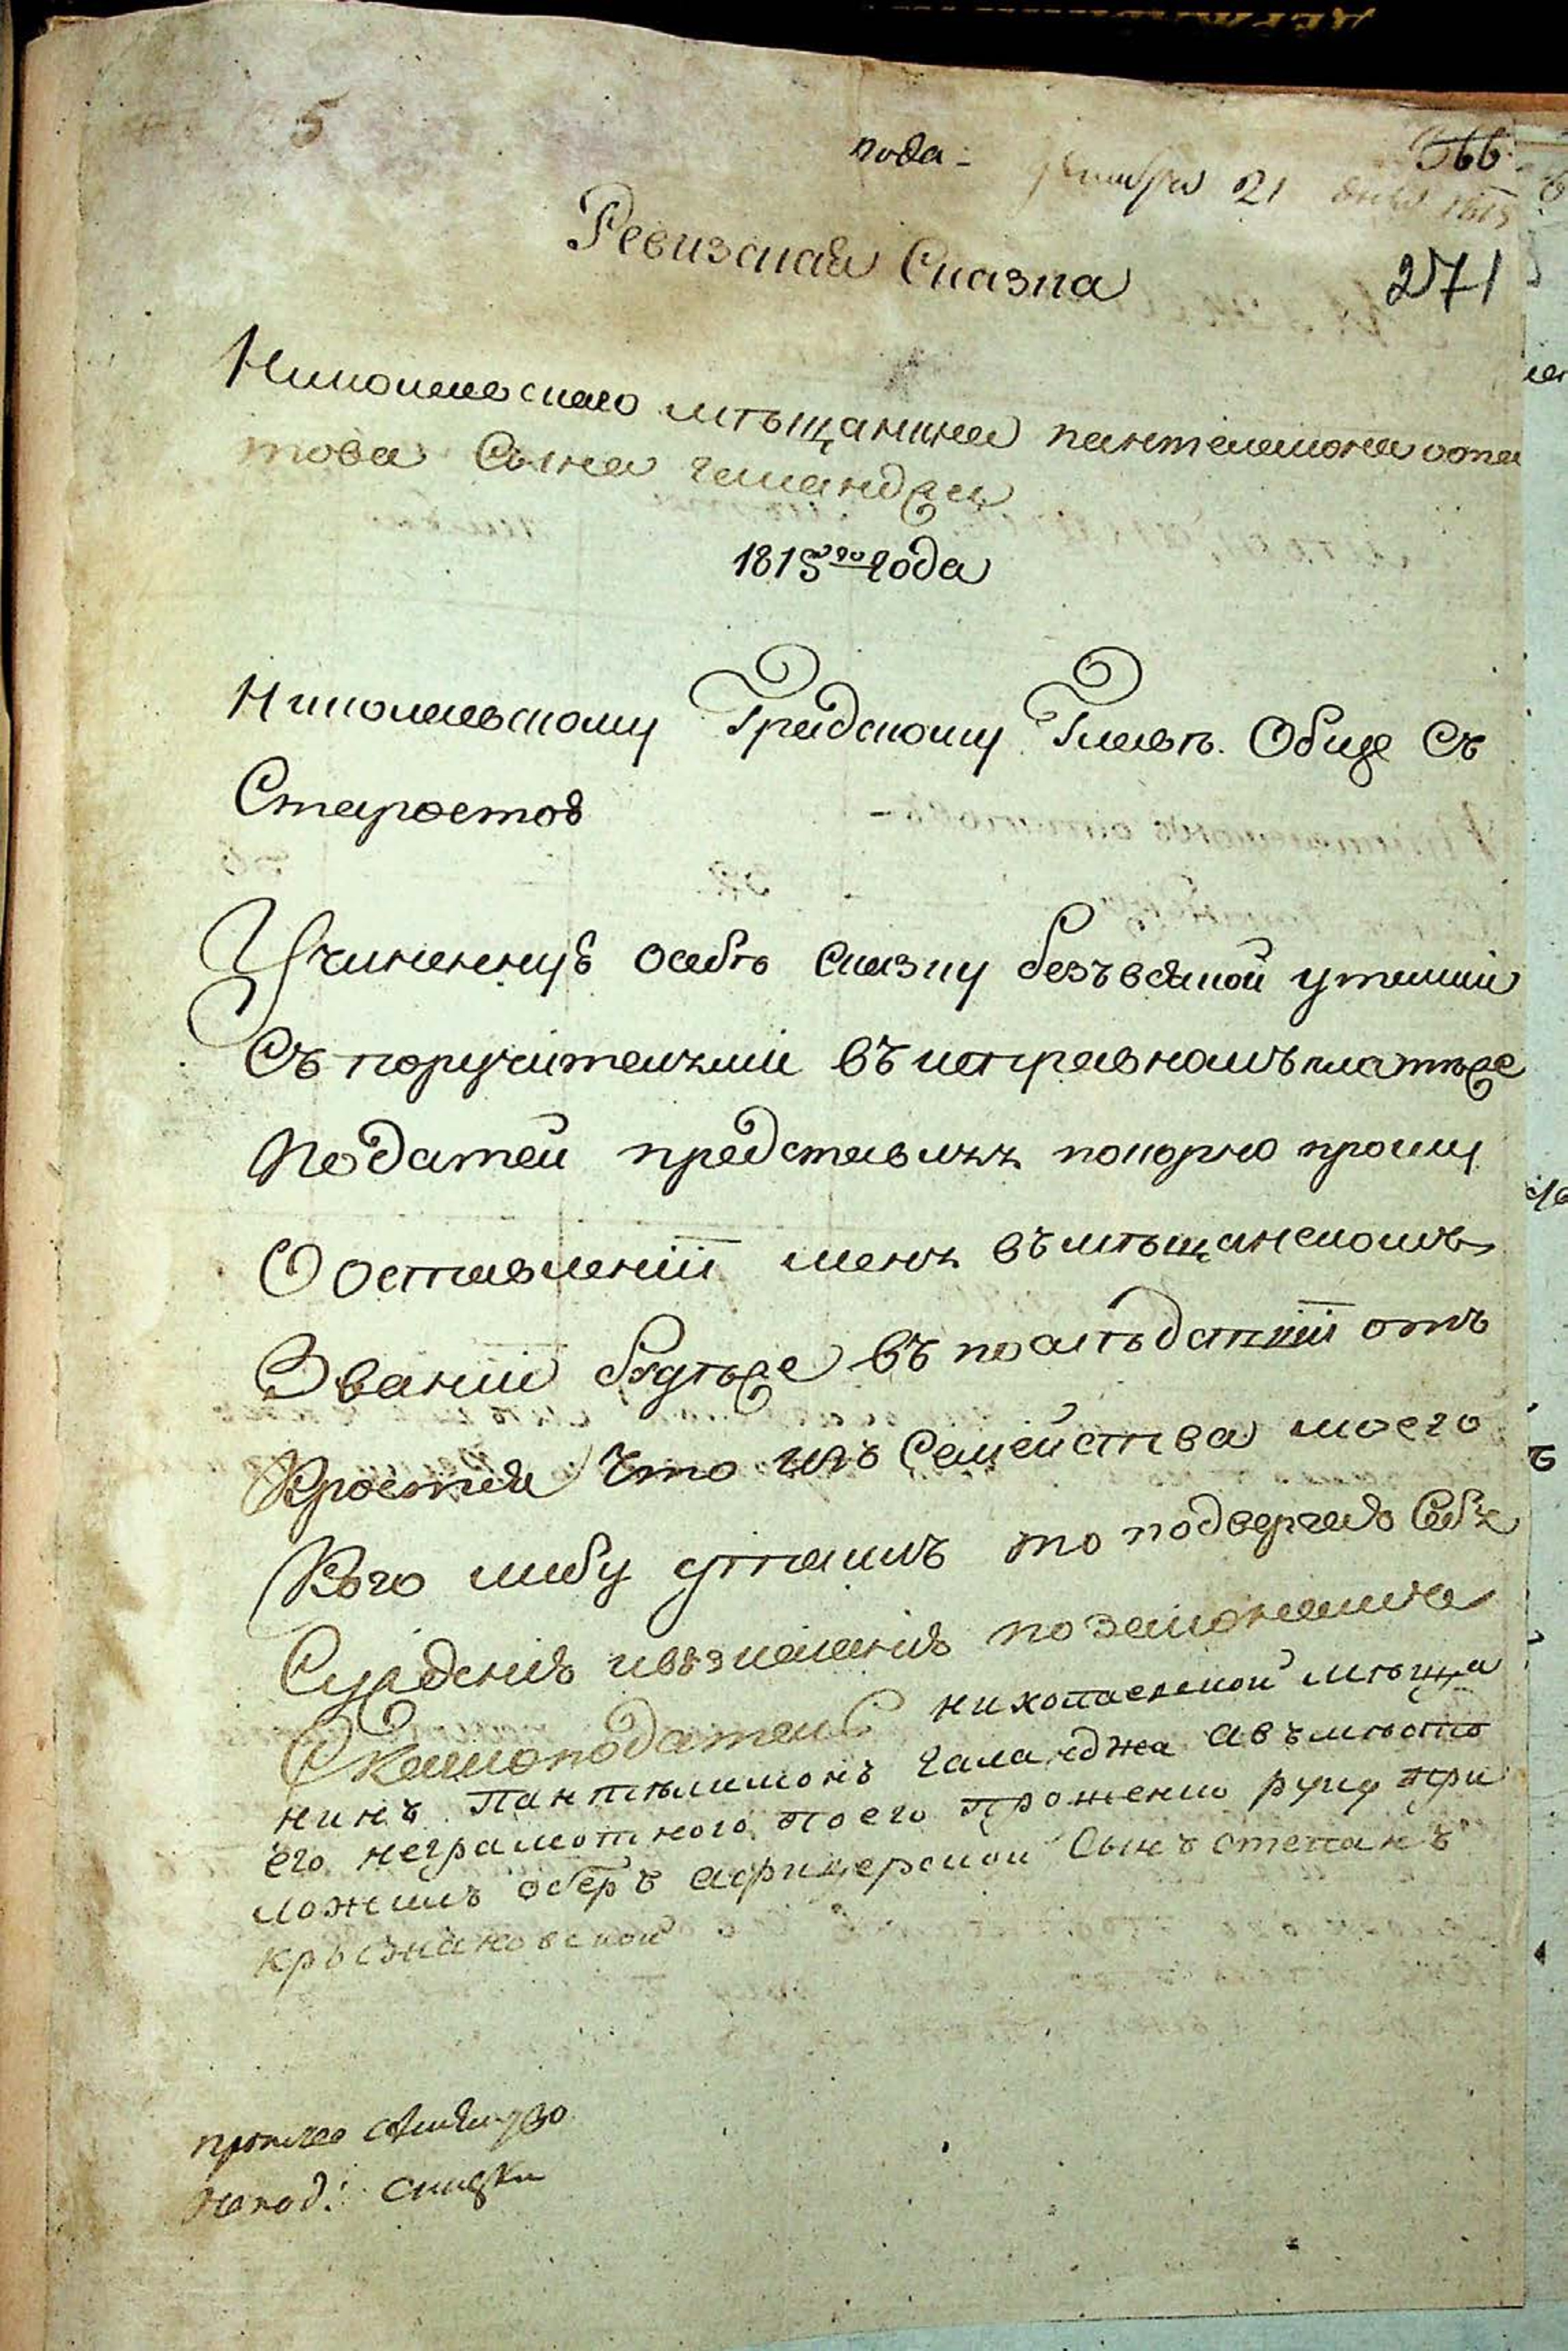 5
пода-
366
21 дня 1815
Ревизская Сказка
271
Николаевскаго мѣщанина пантелемона пота
пова Сына галандзи
1815го года
Николаевскому Градскому Главѣ Обще Съ
Старостою
Учиненную особѣ сказку безъ всякой утайки
Съ поручительми въ исправномъ платѣже
Податей представляя покорно прошу
О оставленіи меня въ мѣщанскомъ
Званіи будѣже въ послѣдствіи отъ
кроется что изъ Семейства моего
Кого либу утаилъ то подвергаю Себя
Сужденію и взысканію по законамъ
Сказкоподатель николаевской мѣща
нинъ Пантѣлимонъ галанджа авъмѣсто
его неграмотного по его прошенію руку при
ложилъ оберъ афицерской Сынъ степанъ
кръсжановской